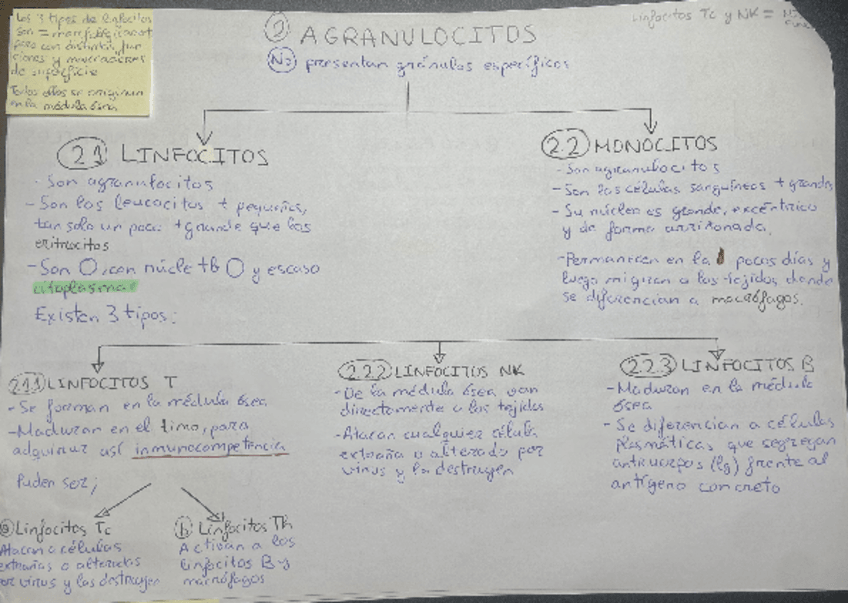 Los 3 tipos de linfocitos
son = morfológicamente
pero con distintas fun
ciones y marcadores
de superficie
Todos ellos se originan
en la médula ósea
Linfocitos Tc y NK =
2 AGRANULOCITOS
No presentan gránulos específicos
2.1 LINFOCITOS
- Son agranulocitos
- Son los leucocitos + pequeños,
tan solo un poco + grande que los
eritrocitos
- Son O, con núcleo tb O y escaso
citoplasma
Existen 3 tipos:
2.2 MONOCITOS
- Son agranulocitos
- Son las células sanguíneas + grandes
- Su núcleo es grande, excéntrico
y de forma arriñonada.
- Permanecen en la pocos días y
luego migran a los tejidos donde
se diferencian a macrófagos.
2.1.1 LINFOCITOS T
- Se forman en la médula ósea
- Maduran en el timo, para
adquirir así inmunocompetencia
Puden ser;
a Linfocitos Tc
Atacan a células
extrañas o alteradas
por virus y las destruyen
b Linfocitos Th
Activan a los
linfocitos B y
macrófagos
2.2.2 LINFOCITOS NK
- De la médula ósea van
directamente a los tejidos
- Atacan cualquier célula
extraña o alterada por
virus y la destruyen
2.2.3 LINFOCITOS B
- Maduran en la médula
ósea
- Se diferencian a células
plasmáticas que segregan
anticuerpos (Ig) frente al
antígeno concreto